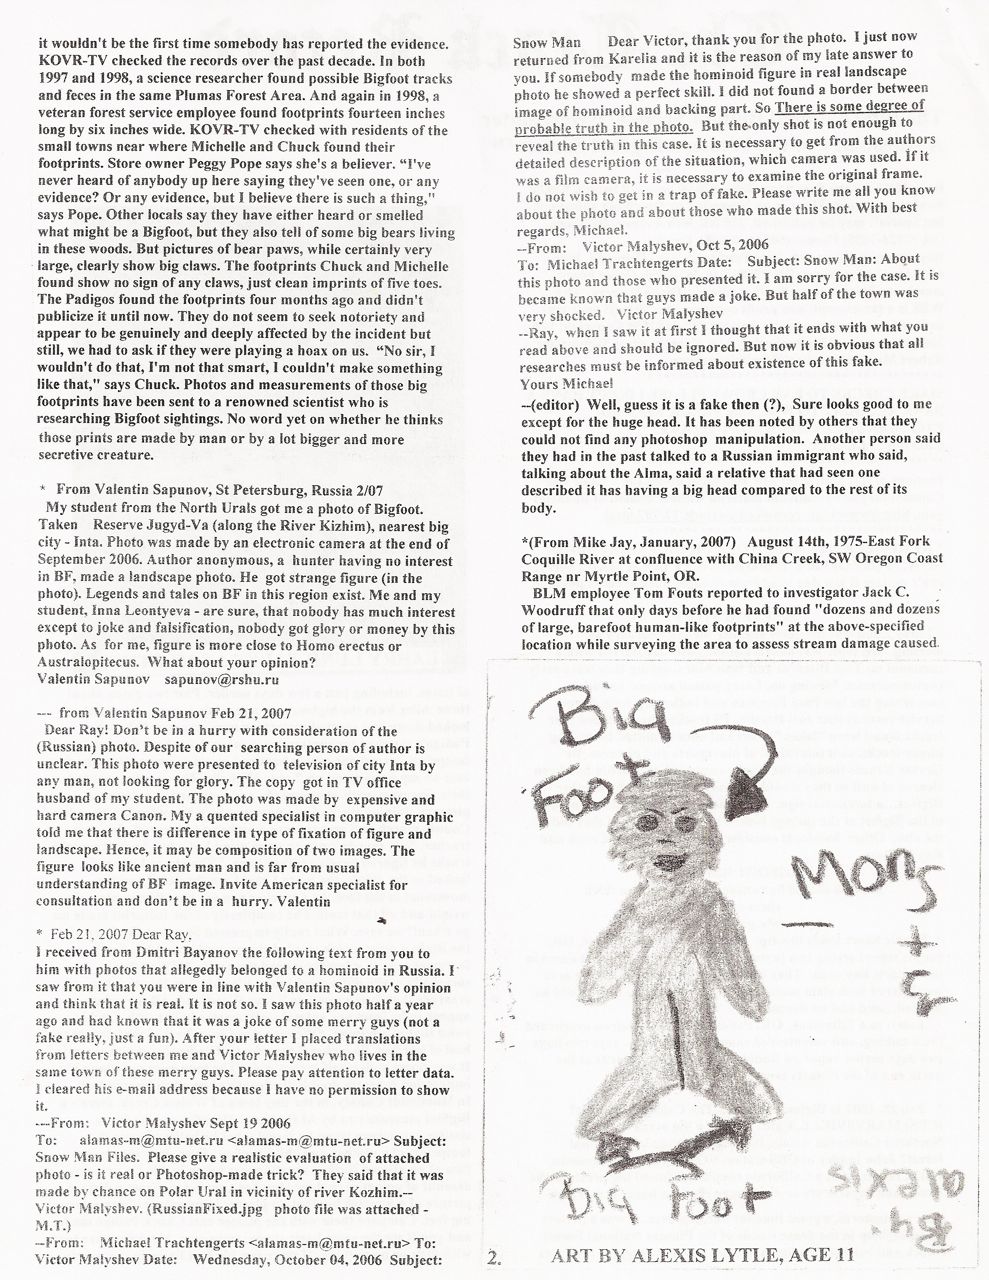 it wouldn't be the first time somebody has reported the evidence.
KOVR-TV checked the records over the past decade. In both
1997 and 1998, a science researcher found possible Bigfoot tracks
and feces in the same Plumas Forest Area. And again in 1998, a
veteran forest service employee found footprints fourteen inches
long by six inches wide. KOVR-TV checked with residents of the
small towns near where Michelle and Chuck found their
footprints. Store owner Peggy Pope says she's a believer. “I've
never heard of anybody up here saying they've seen one, or any
evidence? Or any evidence, but I believe there is such a thing,"
says Pope. Other locals say they have either heard or smelled
what might be a Bigfoot, but they also tell of some big bears living
in these woods. But pictures of bear paws, while certainly very
large, clearly show big claws. The footprints Chuck and Michelle
found show no sign of any claws, just clean imprints of five toes.
The Padigos found the footprints four months ago and didn't
publicize it until now. They do not seem to seek notoriety and
appear to be genuinely and deeply affected by the incident but
still, we had to ask if they were playing a hoax on us. “No sir, I
wouldn't do that, I'm not that smart, I couldn't make something
like that," says Chuck. Photos and measurements of those big
footprints have been sent to a renowned scientist who is
researching Bigfoot sightings. No word yet on whether he thinks
those prints are made by man or by a lot bigger and more
secretive creature.
* From Valentin Sapunov, St Petersburg, Russia 2/07
My student from the North Urals got me a photo of Bigfoot.
Taken Reserve Jugyd-Va (along the River Kizhim), nearest big
city - Inta. Photo was made by an electronic camera at the end of
September 2006. Author anonymous, a hunter having no interest
in BF, made a landscape photo. He got strange figure (in the
photo). Legends and tales on BF in this region exist. Me and my
student, Inna Leontyeva - are sure, that nobody has much interest
except to joke and falsification, nobody got glory or money by this
photo. As for me, figure is more close to Homo erectus or
Australopitecus. What about your opinion?
Valentin Sapunov sapunov@rshu.ru
--- from Valentin Sapunov Feb 21, 2007
Dear Ray! Don't be in a hurry with consideration of the
(Russian) photo. Despite of our searching person of author is
unclear. This photo were presented to television of city Inta by
any man, not looking for glory. The copy got in TV office
husband of my student. The photo was made by expensive and
hard camera Canon. My a quented specialist in computer graphic
told me that there is difference in type of fixation of figure and
landscape. Hence, it may be composition of two images. The
figure looks like ancient man and is far from usual
understanding of BF image. Invite American specialist for
consultation and don't be in a hurry. Valentin
* Feb 21, 2007 Dear Ray,
I received from Dmitri Bayanov the following text from you to
him with photos that allegedly belonged to a hominoid in Russia. I
saw from it that you were in line with Valentin Sapunov's opinion
and think that it is real. It is not so. I saw this photo half a year
ago and had known that it was a joke of some merry guys (not a
fake really, just a fun). After your letter I placed translations
from letters between me and Victor Malyshev who lives in the
same town of these merry guys. Please pay attention to letter data.
I cleared his e-mail address because I have no permission to show
it.
---From: Victor Malyshev Sept 19 2006
To: alamas-m@mtu-net.ru <alamas-m@mtu-net.ru> Subject:
Snow Man Files. Please give a realistic evaluation of attached
photo - is it real or Photoshop-made trick? They said that it was
made by chance on Polar Ural in vicinity of river Kozhim.--
Victor Malyshev. (RussianFixed.jpg photo file was attached -
M.T.)
--From: Michael Trachtengerts <alamas-m@mtu-net.ru> To:
Victor Malyshev Date: Wednesday, October 04, 2006 Subject:
Snow Man Dear Victor, thank you for the photo. I just now
returned from Karelia and it is the reason of my late answer to
you. If somebody made the hominoid figure in real landscape
photo he showed a perfect skill. I did not found a border between
image of hominoid and backing part. So There is some degree of
probable truth in the photo. But the only shot is not enough to
reveal the truth in this case. It is necessary to get from the authors
detailed description of the situation, which camera was used. If it
was a film camera, it is necessary to examine the original frame.
I do not wish to get in a trap of fake. Please write me all you know
about the photo and about those who made this shot. With best
regards, Michael.
--From: Victor Malyshev, Oct 5, 2006
To: Michael Trachtengerts Date: Subject: Snow Man: About
this photo and those who presented it. I am sorry for the case. It is
became known that guys made a joke. But half of the town was
very shocked. Victor Malyshev
--Ray, when I saw it at first I thought that it ends with what you
read above and should be ignored. But now it is obvious that all
researches must be informed about existence of this fake.
Yours Michael
--(editor) Well, guess it is a fake then (?), Sure looks good to me
except for the huge head. It has been noted by others that they
could not find any photoshop manipulation. Another person said
they had in the past talked to a Russian immigrant who said,
talking about the Alma, said a relative that had seen one
described it has having a big head compared to the rest of its
body.
*(From Mike Jay, January, 2007) August 14th, 1975-East Fork
Coquille River at confluence with China Creek, SW Oregon Coast
Range nr Myrtle Point, OR.
BLM employee Tom Fouts reported to investigator Jack C.
Woodruff that only days before he had found "dozens and dozens
of large, barefoot human-like footprints" at the above-specified
location while surveying the area to assess stream damage caused
Big
Foot
Mons
t
Big Foot
By:
alexis
2.
ART BY ALEXIS LYTLE, AGE 11